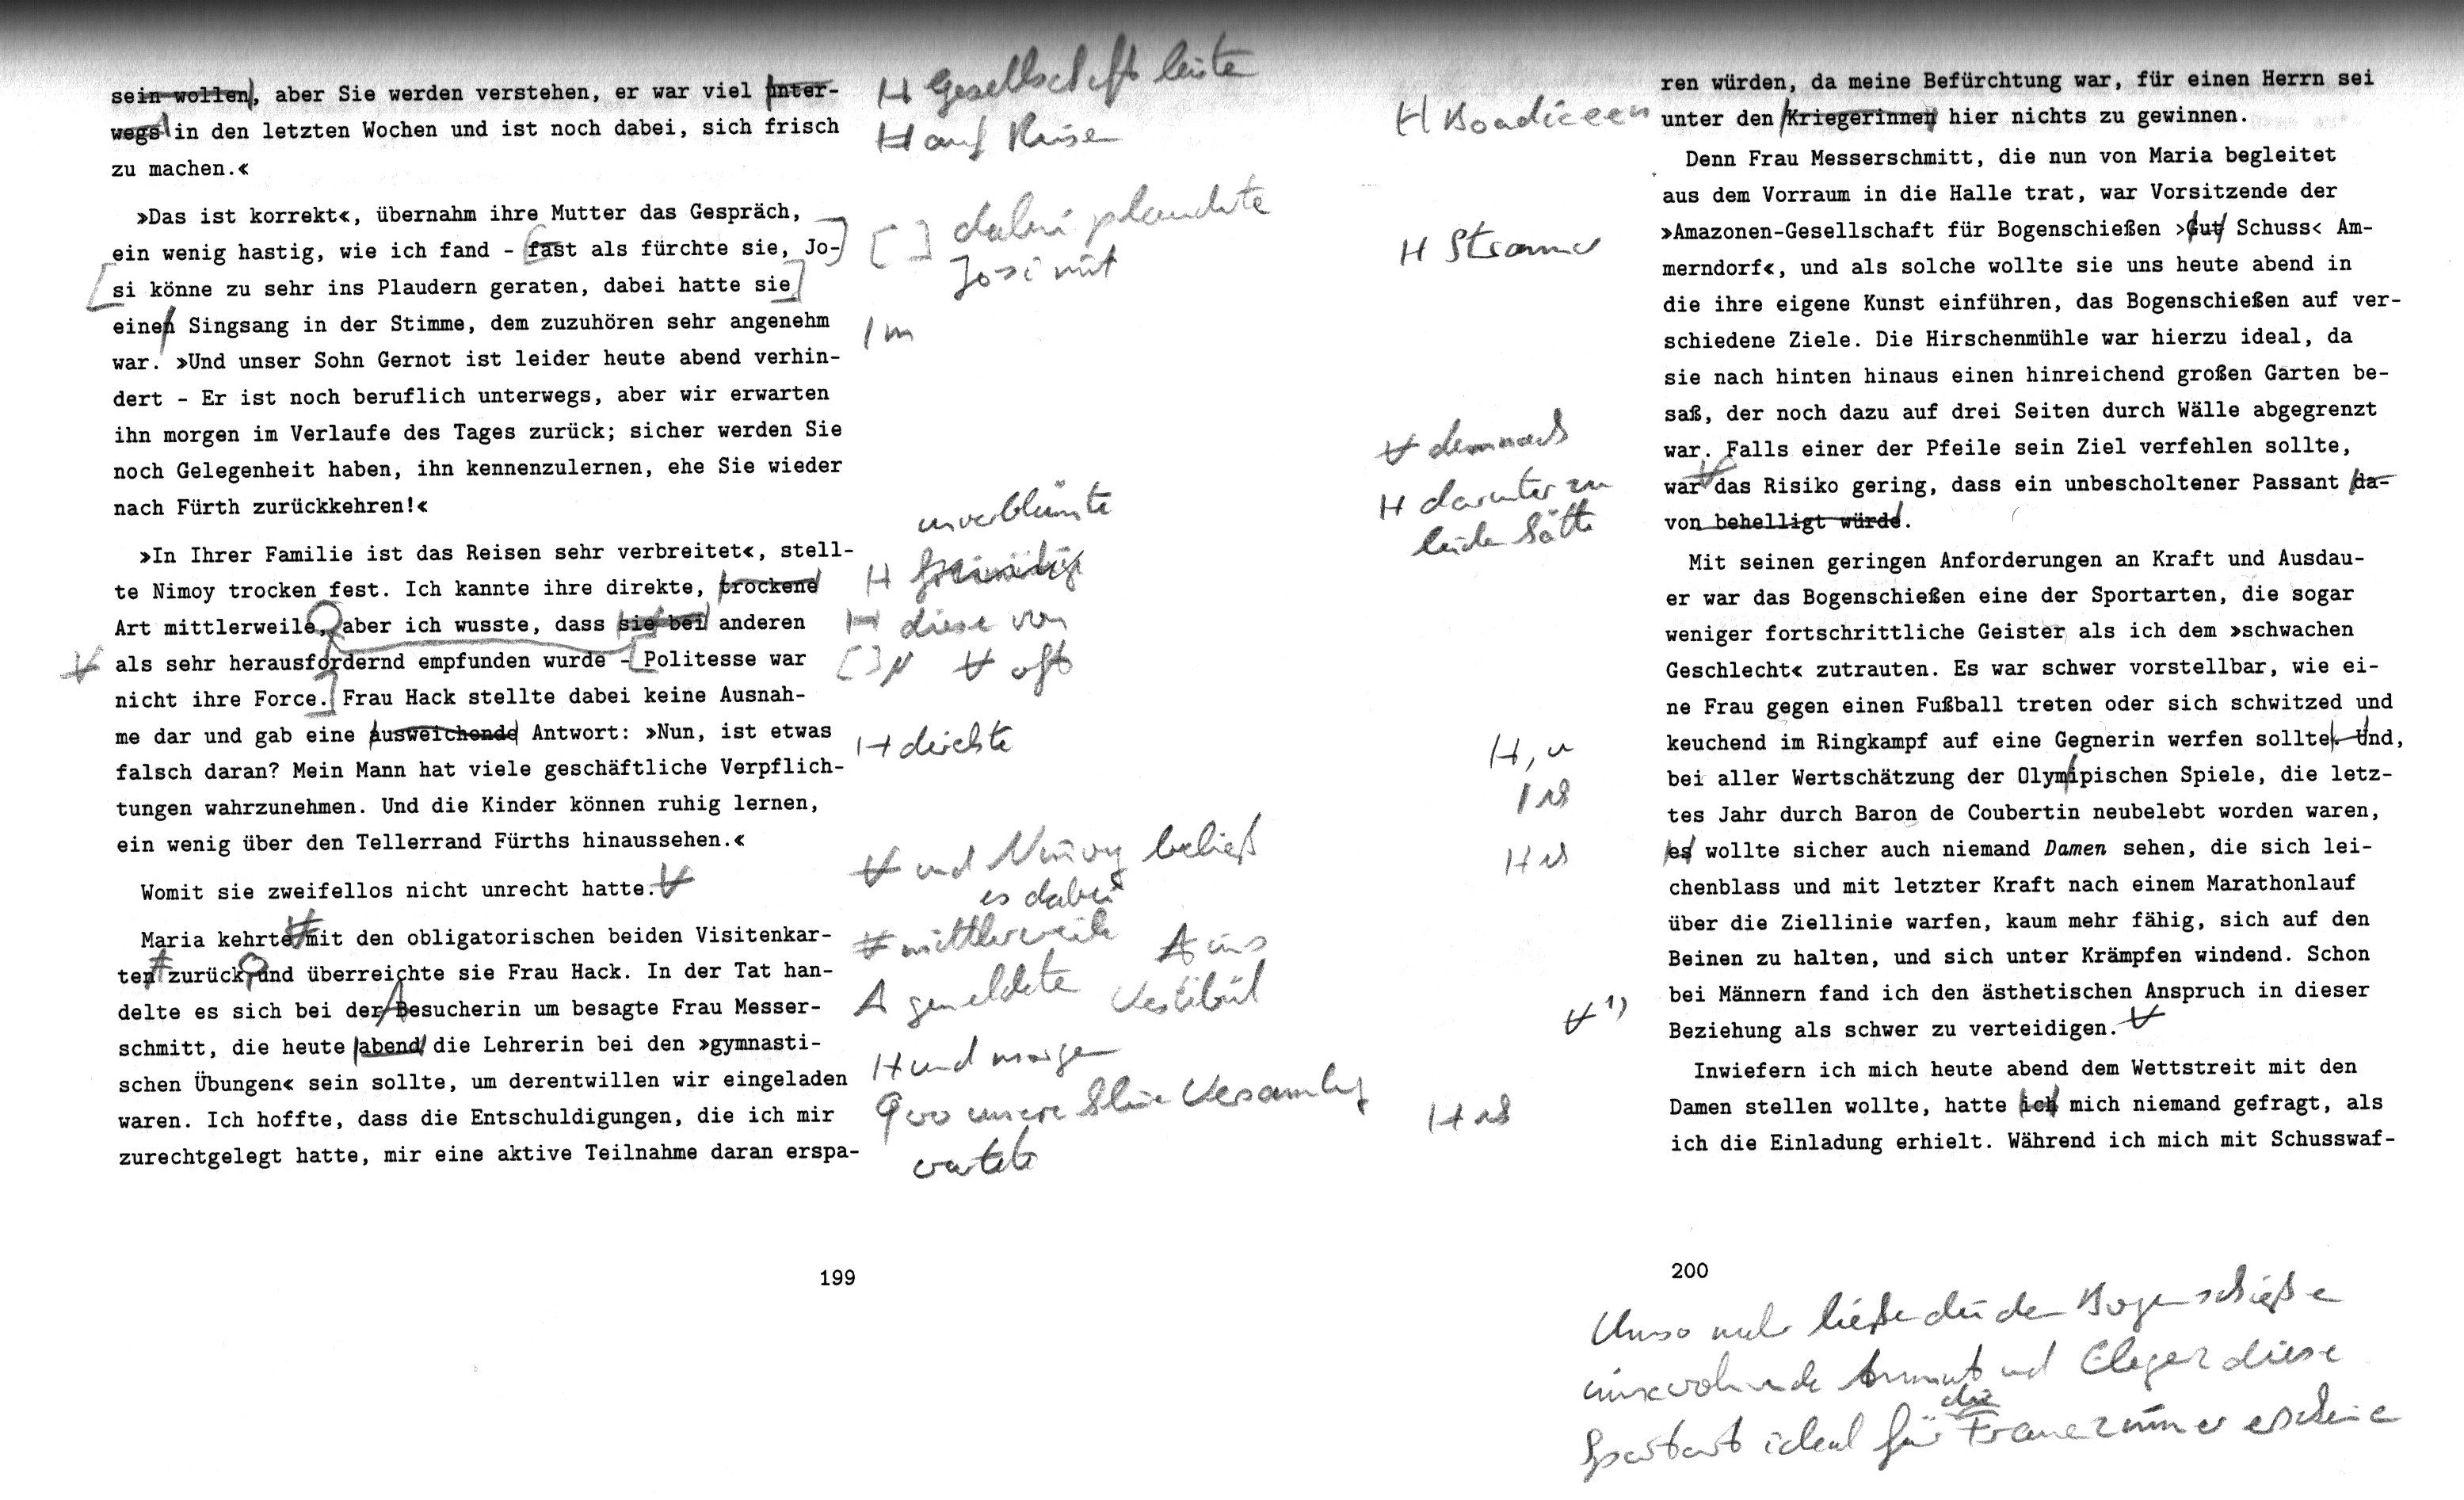 sein wollen, aber Sie werden verstehen, er war viel unter-
wegs in den letzten Wochen und ist noch dabei, sich frisch
zu machen.«
»Das ist korrekt«, übernahm ihre Mutter das Gespräch,
ein wenig hastig, wie ich fand - fast als fürchte sie, Jo-
si könne zu sehr ins Plaudern geraten, dabei hatte sie
einen Singsang in der Stimme, dem zuzuhören sehr angenehm
war. »Und unser Sohn Gernot ist leider heute abend verhin-
dert - Er ist noch beruflich unterwegs, aber wir erwarten
ihn morgen im Verlaufe des Tages zurück; sicher werden Sie
noch Gelegenheit haben, ihn kennenzulernen, ehe Sie wieder
nach Fürth zurückkehren!«
»In Ihrer Familie ist das Reisen sehr verbreitet«, stell-
te Nimoy trocken fest. Ich kannte ihre direkte, trockene
Art mittlerweile, aber ich wusste, dass sie bei anderen
als sehr herausfordernd empfunden wurde - Politesse war
nicht ihre Force. Frau Hack stellte dabei keine Ausnah-
me dar und gab eine ausweichende Antwort: »Nun, ist etwas
falsch daran? Mein Mann hat viele geschäftliche Verpflich-
tungen wahrzunehmen. Und die Kinder können ruhig lernen,
ein wenig über den Tellerrand Fürths hinaussehen.«
Womit sie zweifellos nicht unrecht hatte.
Maria kehrte mit den obligatorischen beiden Visitenkar-
ten zurück und überreichte sie Frau Hack. In der Tat han-
delte es sich bei der Besucherin um besagte Frau Messer-
schmitt, die heute abend die Lehrerin bei den »gymnasti-
schen Übungen« sein sollte, um derentwillen wir eingeladen
waren. Ich hoffte, dass die Entschuldigungen, die ich mir
zurechtgelegt hatte, mir eine aktive Teilnahme daran erspa-
199
Gesellschaft leiste
auf Reisen
dabei plauderte
Josi mit
m
unverblümte
diese von
oft
direkte
und Nimoy beließ
es dabei
mittlerweile
ins
gemeldete Vestibül
und morgen
wo unsere kleine Versammlung
wartete
ren würden, da meine Befürchtung war, für einen Herrn sei
unter den Kriegerinnen hier nichts zu gewinnen.
Denn Frau Messerschmitt, die nun von Maria begleitet
aus dem Vorraum in die Halle trat, war Vorsitzende der
»Amazonen-Gesellschaft für Bogenschießen ›Gut Schuss‹ Am-
merndorf«, und als solche wollte sie uns heute abend in
die ihre eigene Kunst einführen, das Bogenschießen auf ver-
schiedene Ziele. Die Hirschenmühle war hierzu ideal, da
sie nach hinten hinaus einen hinreichend großen Garten be-
saß, der noch dazu auf drei Seiten durch Wälle abgegrenzt
war. Falls einer der Pfeile sein Ziel verfehlen sollte,
war das Risiko gering, dass ein unbescholtener Passant da-
von behelligt würde.
Mit seinen geringen Anforderungen an Kraft und Ausdau-
er war das Bogenschießen eine der Sportarten, die sogar
weniger fortschrittliche Geister als ich dem »schwachen
Geschlecht« zutrauten. Es war schwer vorstellbar, wie ei-
ne Frau gegen einen Fußball treten oder sich schwitzed und
keuchend im Ringkampf auf eine Gegnerin werfen sollte. Und,
bei aller Wertschätzung der Olymipischen Spiele, die letz-
tes Jahr durch Baron de Coubertin neubelebt worden waren,
es wollte sicher auch niemand Damen sehen, die sich lei-
chenblass und mit letzter Kraft nach einem Marathonlauf
über die Ziellinie warfen, kaum mehr fähig, sich auf den
Beinen zu halten, und sich unter Krämpfen windend. Schon
bei Männern fand ich den ästhetischen Anspruch in dieser
Beziehung als schwer zu verteidigen.
Inwiefern ich mich heute abend dem Wettstreit mit den
Damen stellen wollte, hatte ich mich niemand gefragt, als
ich die Einladung erhielt. Während ich mich mit Schusswaf-
200
Boadiceen
Strammer
demnach
darunter zu
leiden hätte
, u
1)
Umso mehr ließen die dem Bogenschießen
innewohnende Anmut und Eleganz diese
die
Sportart ideal für Frauenzimmer erscheinen